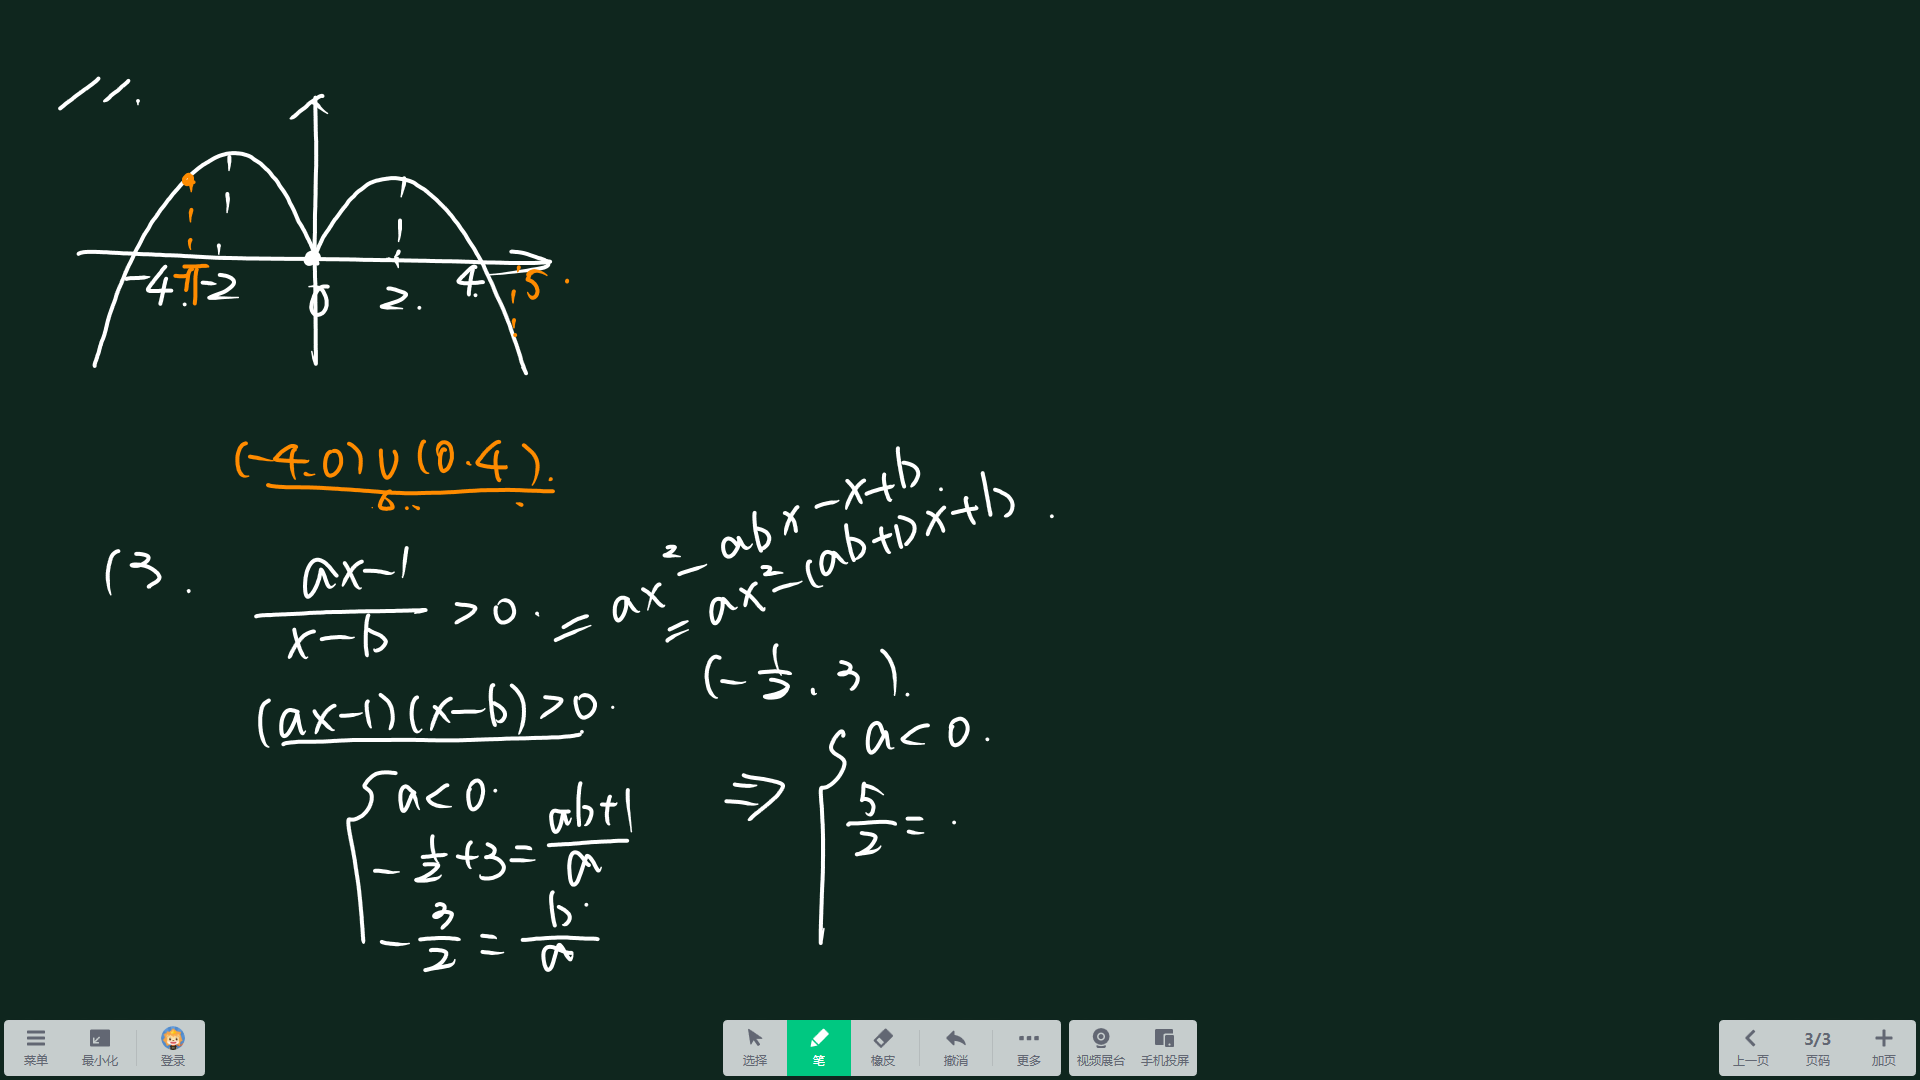 11.
-4. -π -2 0 2. 4. 5.
(-4.0)∪(0.4).
13. (ax-1)/(x-b) > 0. = ax²-abx-x+b.
= ax²-(ab+1)x+b.
(-1/2, 3).
(ax-1)(x-b)>0.
{ a<0. ⇒ { a<0.
-1/2+3=(ab+1)/a 5/2=
-3/2=b/a
菜单 最小化 登录 选择 笔 橡皮 撤消 更多 视频展台 手机投屏 上一页 3/3 页码 加页